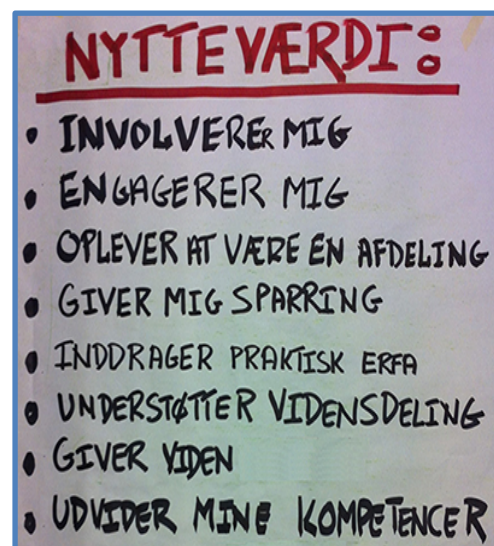 NYTTEVÆRDI:
• INVOLVERER MIG
• ENGAGERER MIG
• OPLEVER AT VÆRE EN AFDELING
• GIVER MIG SPARRING
• INDDRAGER PRAKTISK ERFA
• UNDERSTØTTER VIDENSDELING
• GIVER VIDEN
• UDVIDER MINE KOMPETENCER